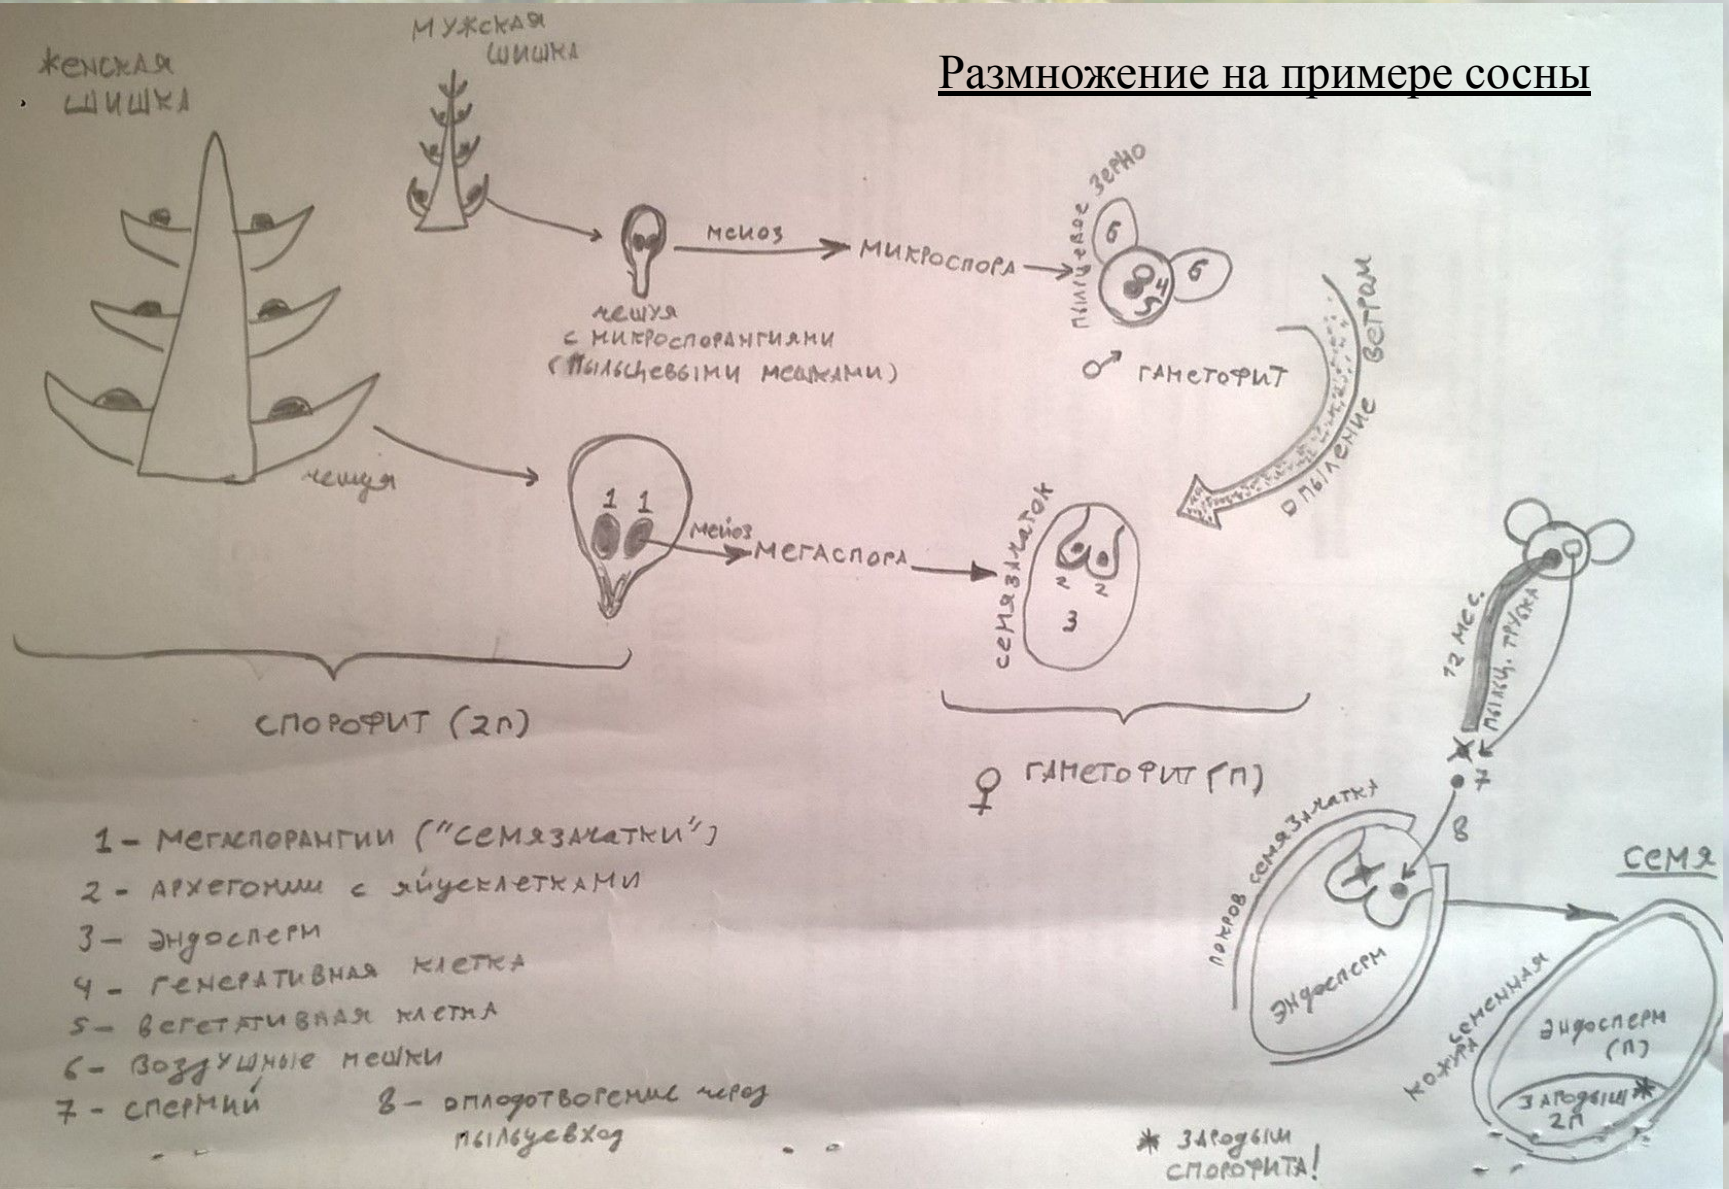 Размножение на примере сосны
ЖЕНСКАЯ
ШИШКА
МУЖСКАЯ
ШИШКА
мейоз
МИКРОСПОРА
ПЫЛЬЦЕВОЕ ЗЕРНО
6
6
5 4
чешуя
с микроспорангиями
(пыльцевыми мешками)
♂ ГАМЕТОФИТ
ОПЫЛЕНИЕ ВЕТРОМ
чешуя
1 1
мейоз
МЕГАСПОРА
СЕМЯЗАЧАТОК
2 2
3
12 мес.
ПЫЛЬЦ. ТРУБКА
7
8
СПОРОФИТ (2n)
♀ ГАМЕТОФИТ (n)
покров семязачатка
Эндосперм
СЕМЯ
семенная
кожура
Эндосперм
(n)
ЗАРОДЫШ*
2n
1 - МЕГАСПОРАНГИИ ("СЕМЯЗАЧАТКИ")
2 - АРХЕГОНИИ с яйцеклетками
3 - Эндосперм
4 - Генеративная клетка
5 - Вегетативная клетка
6 - Воздушные мешки
7 - спермий
8 - оплодотворение через
пыльцевход
* ЗАРОДЫШ
СПОРОФИТА!